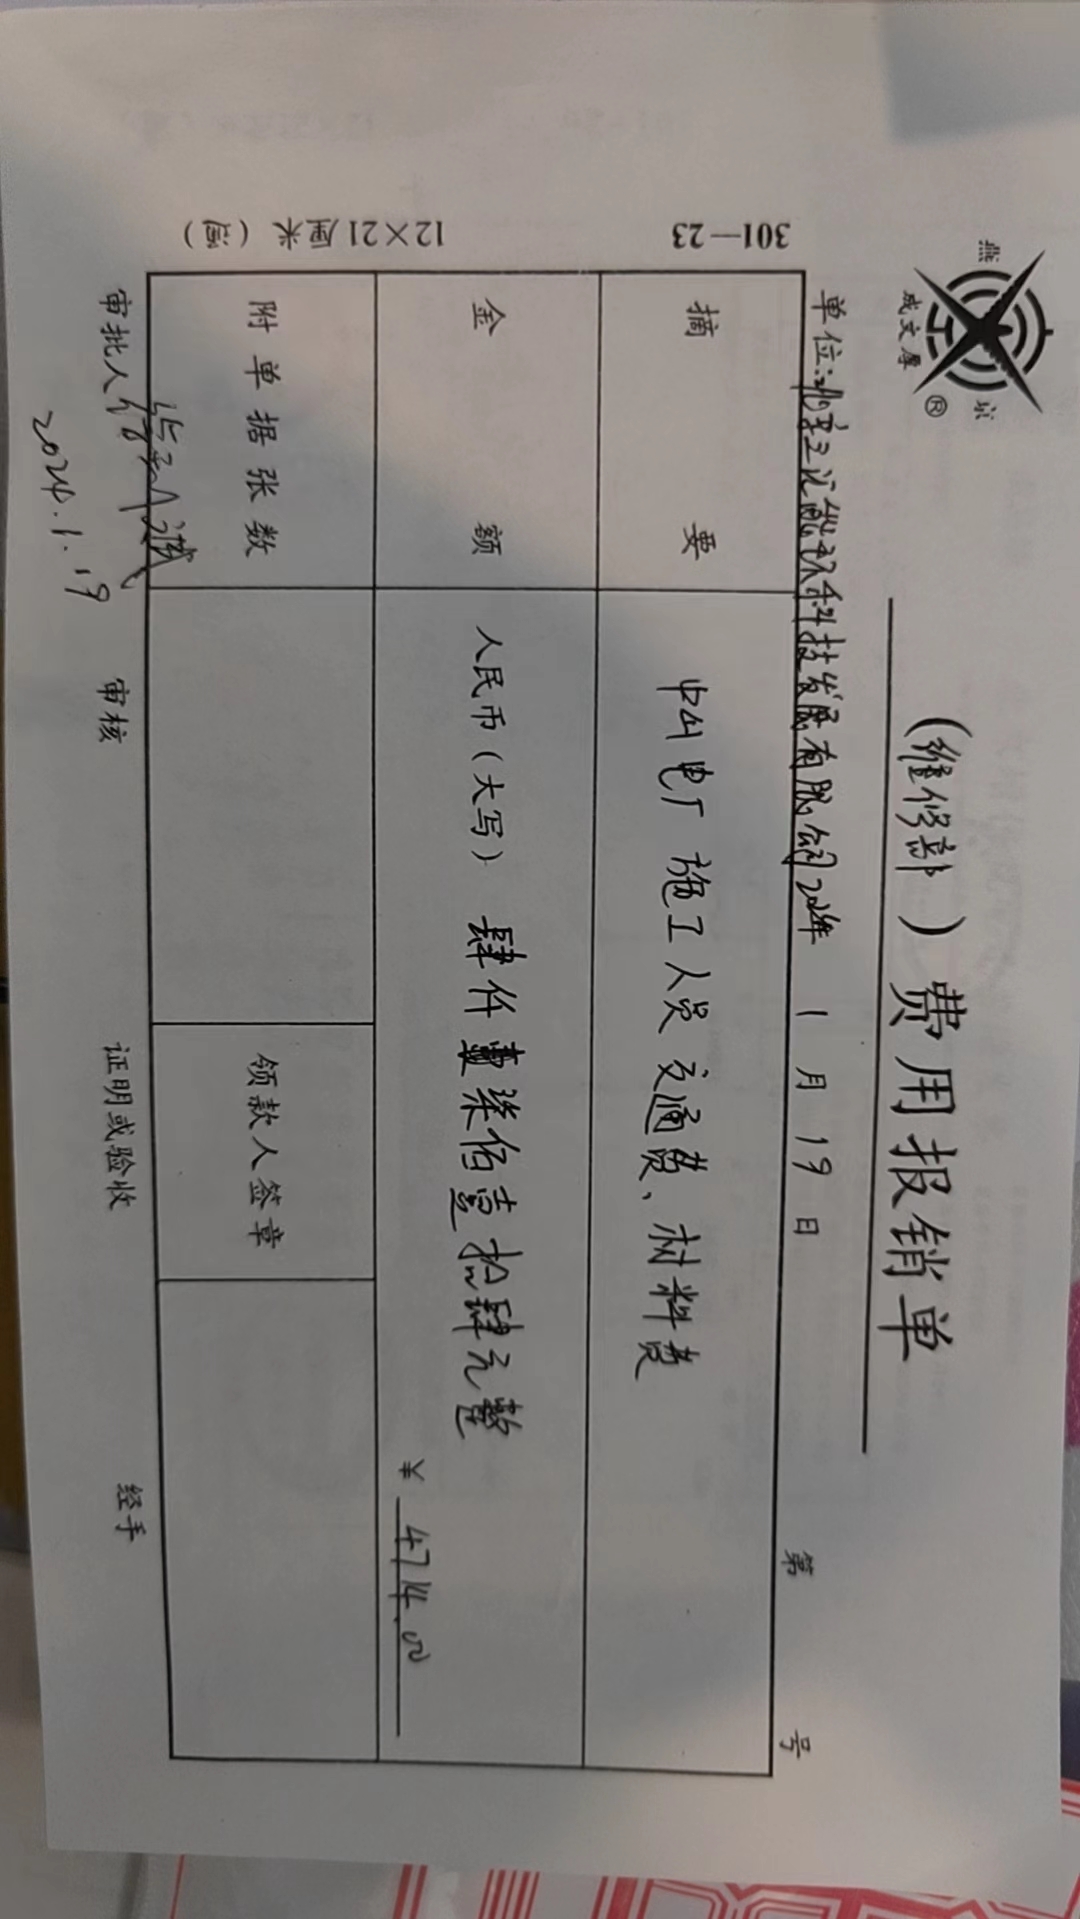 燕 京
成文厚®
(维修部) 费用报销单
单位:北京 科技发展有限公司 2024年 1月 19日 第 号
摘要 中山电厂 施工人员交通费、材料费
金额 人民币(大写) 肆仟柒佰壹拾肆元整
¥ 4714.00
附单据张数 领款人签章
审批人 审核 证明或验收 经手
2024.1.19
301—23 12×21厘米(通)